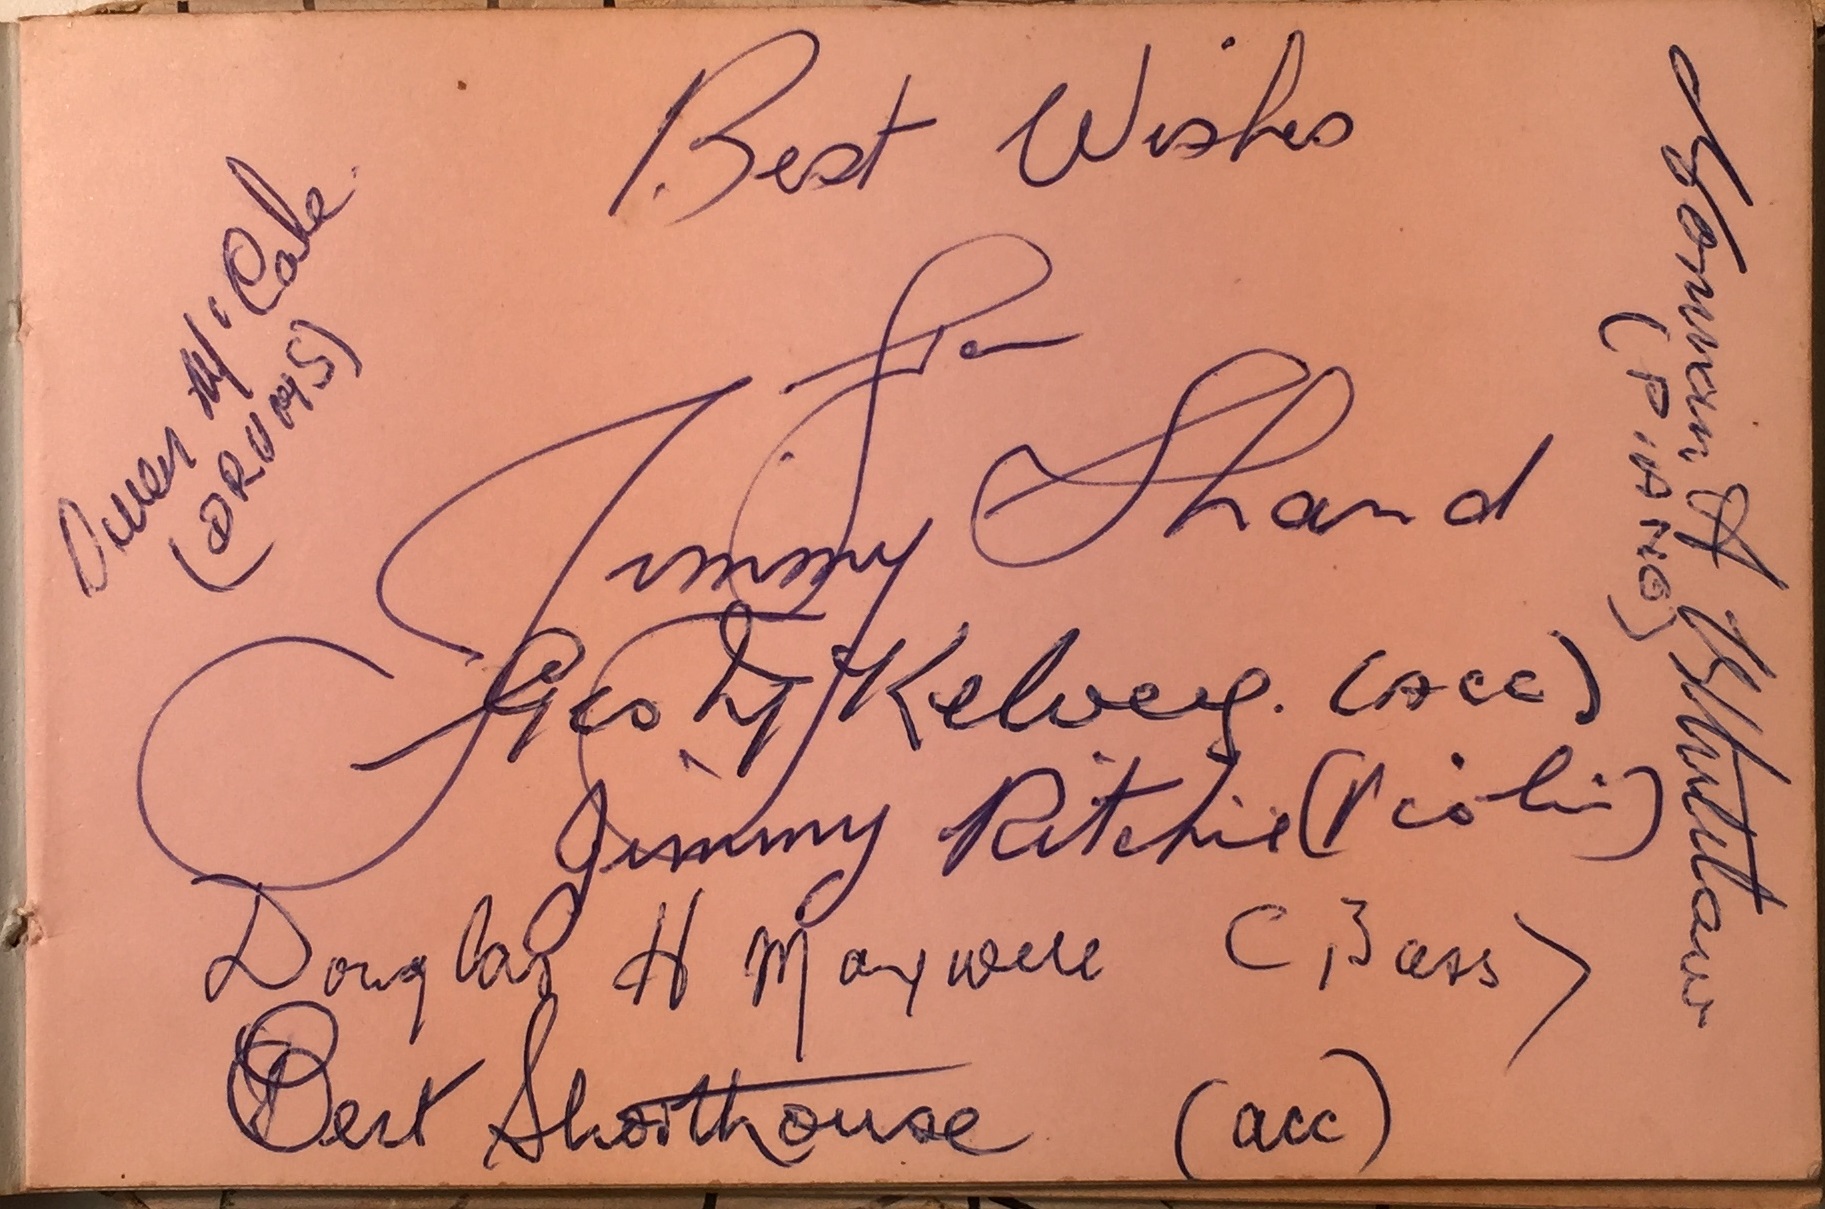 Best Wishes
Jimmy Shand
(DRUMS)
Norman A Whitelaw
(PIANO)
Kelvey. (Acc)
Jimmy Ritchie (Violin)
Douglas H Maxwell (Bass)
Bert Shorthouse (acc)